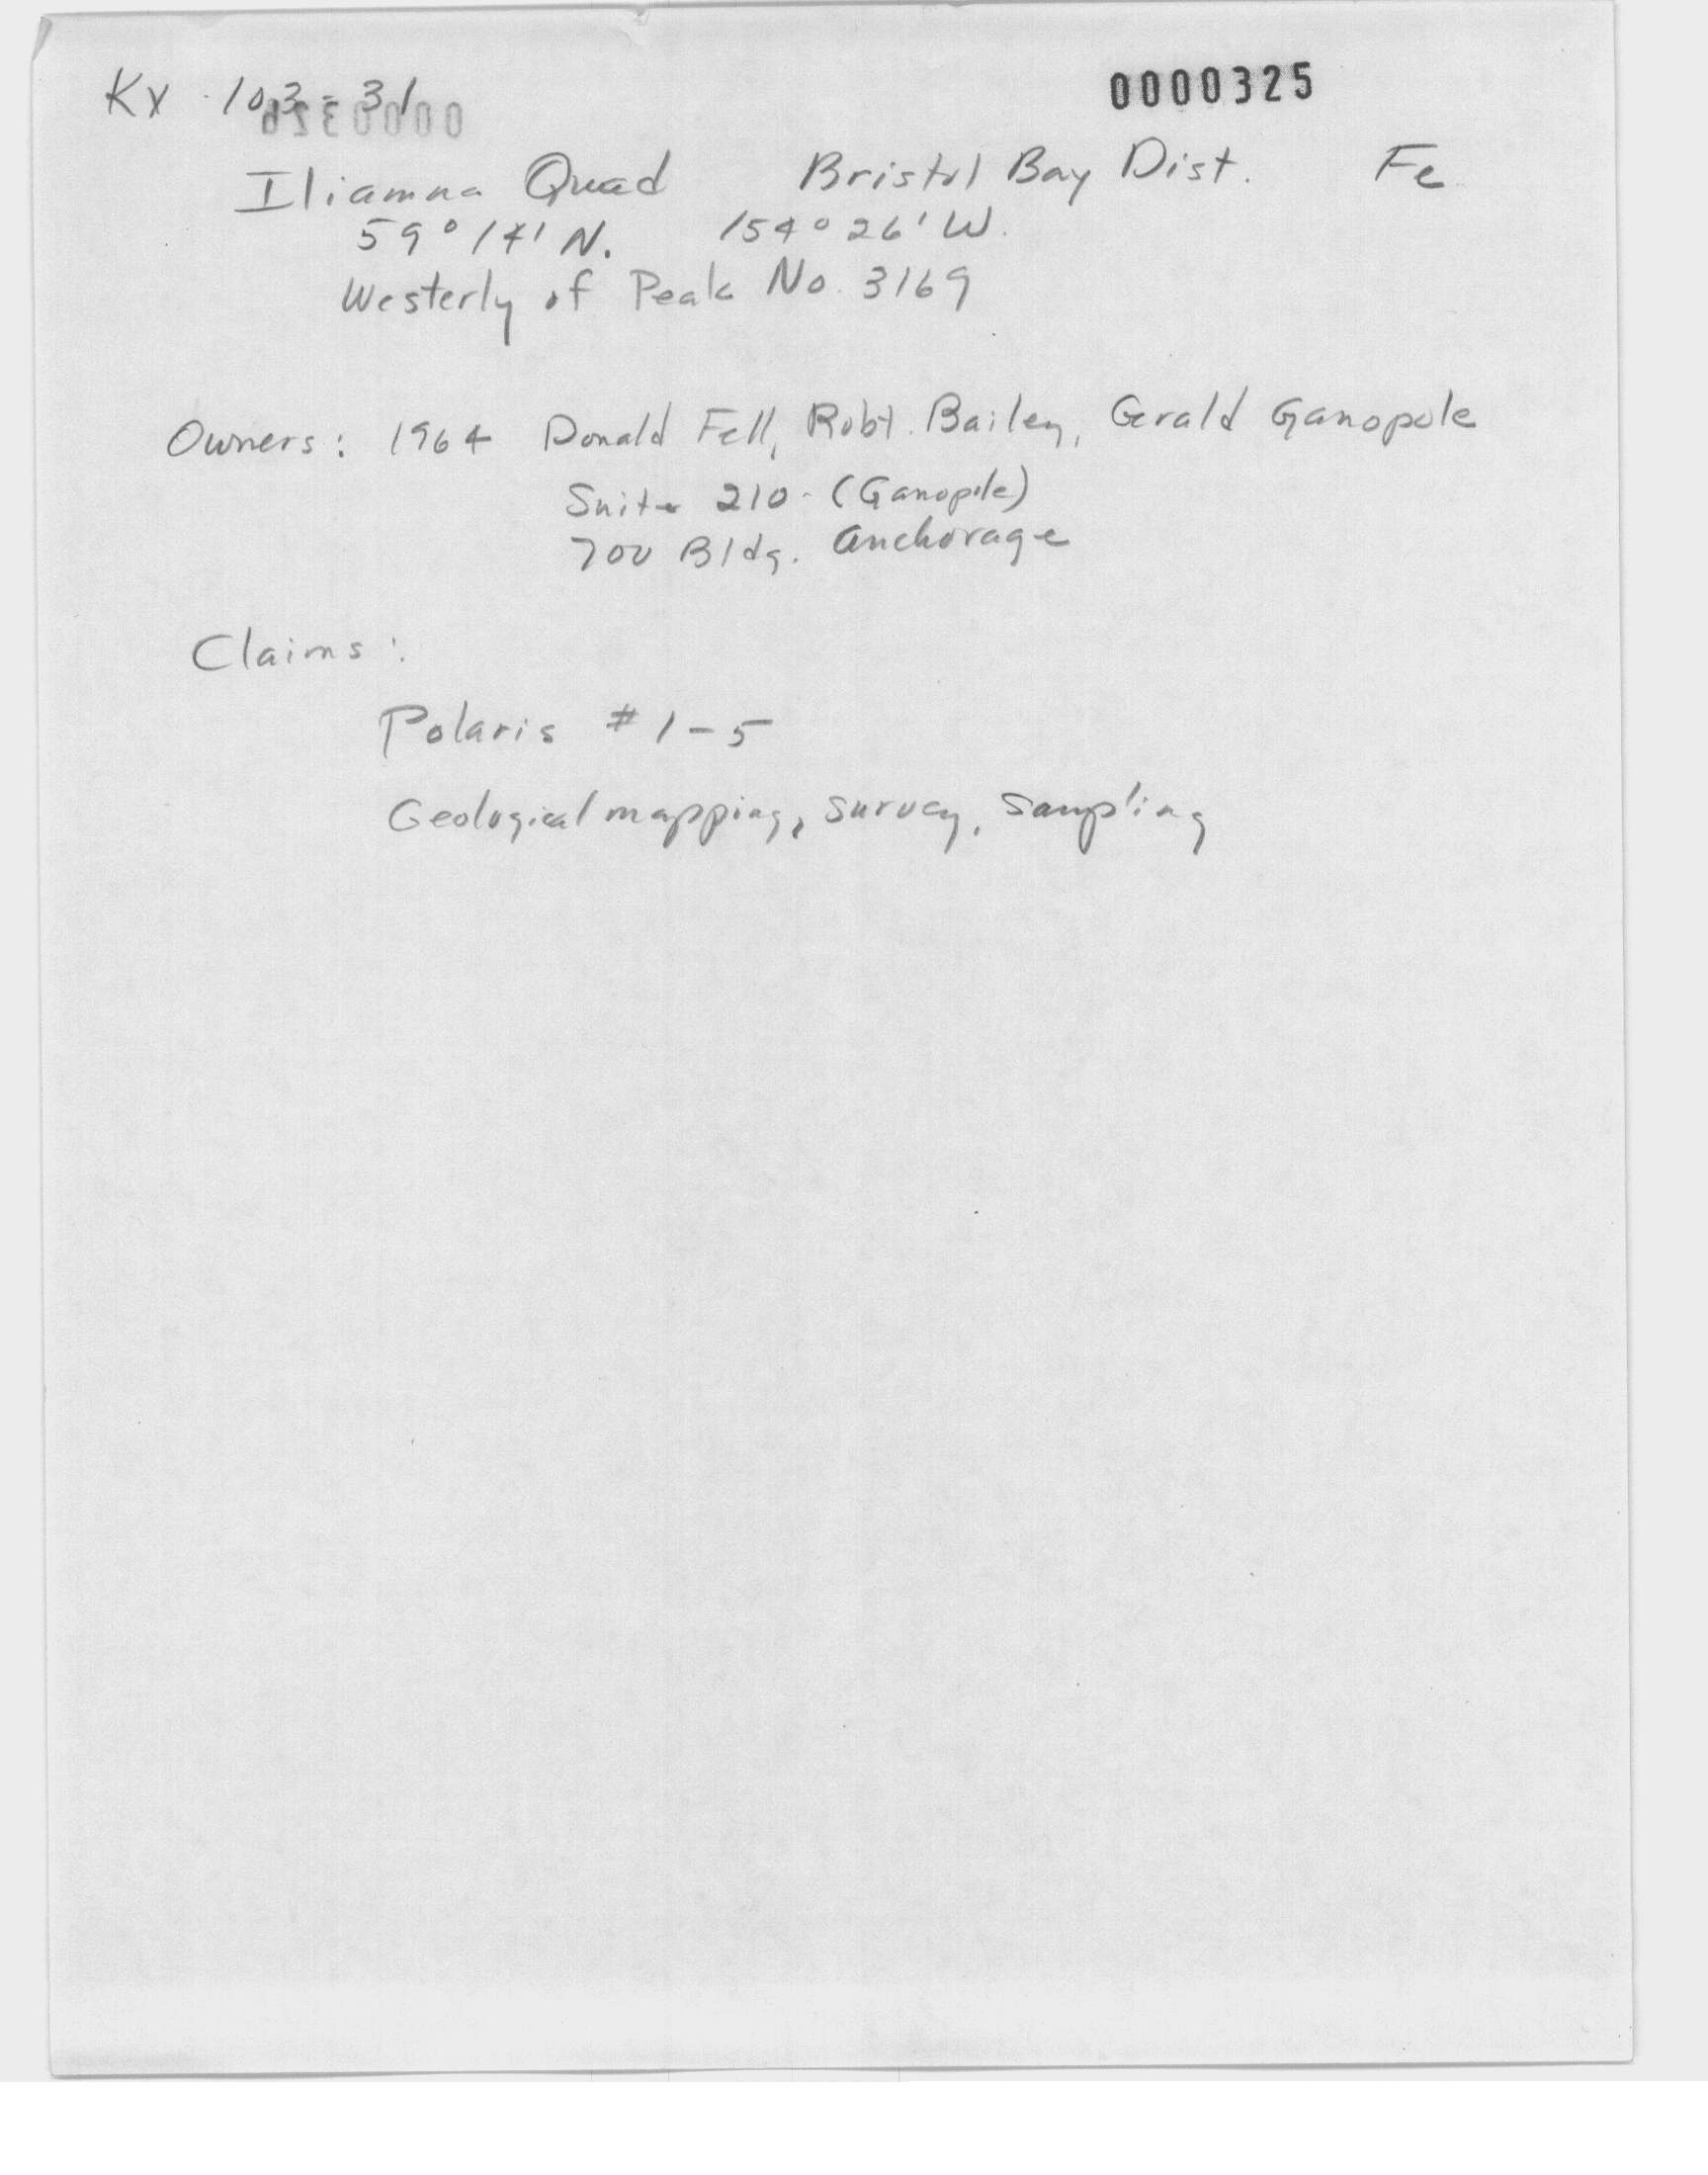 Kx 103-31 0000325
Iliamna Quad Bristol Bay Dist. Fe
59° 14' N. 154° 26' W.
Westerly of Peak No. 3169
Owners: 1964 Donald Fell, Robt. Bailey, Gerald Ganopole
Suite 210 - (Ganopole)
700 Bldg. Anchorage
Claims:
Polaris # 1-5
Geological mapping, survey, sampling